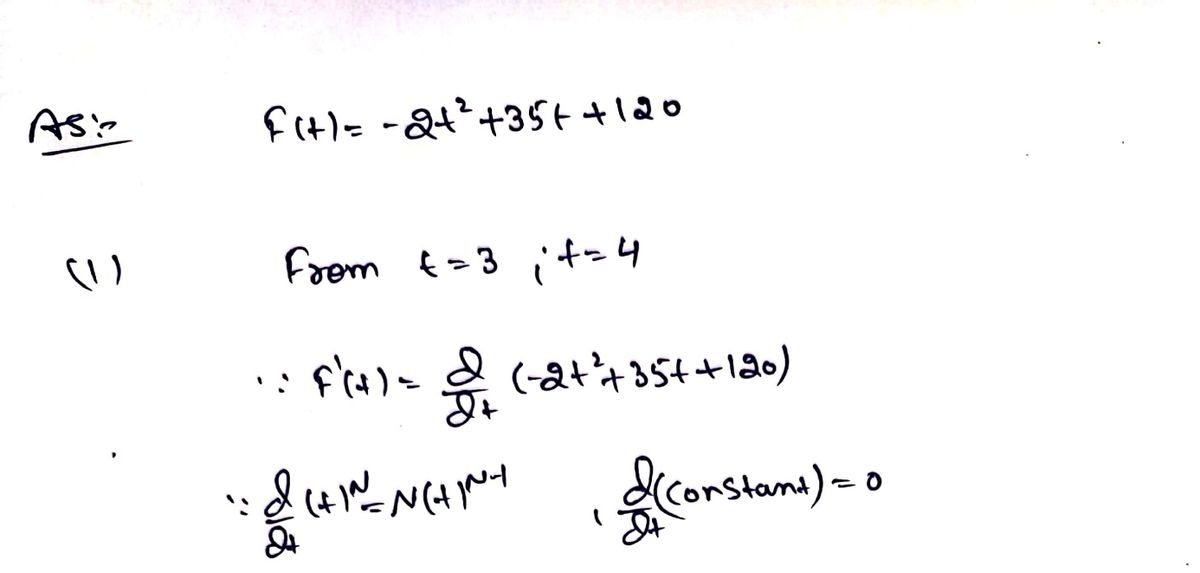 AS:- f(t) = -2t² + 35t + 120
(1) From t = 3 ; t = 4
∵ f'(t) = d/dt (-2t² + 35t + 120)
∵ d/dt (t)ᴺ = N(t)ᴺ⁻¹ , d/dt (constant) = 0